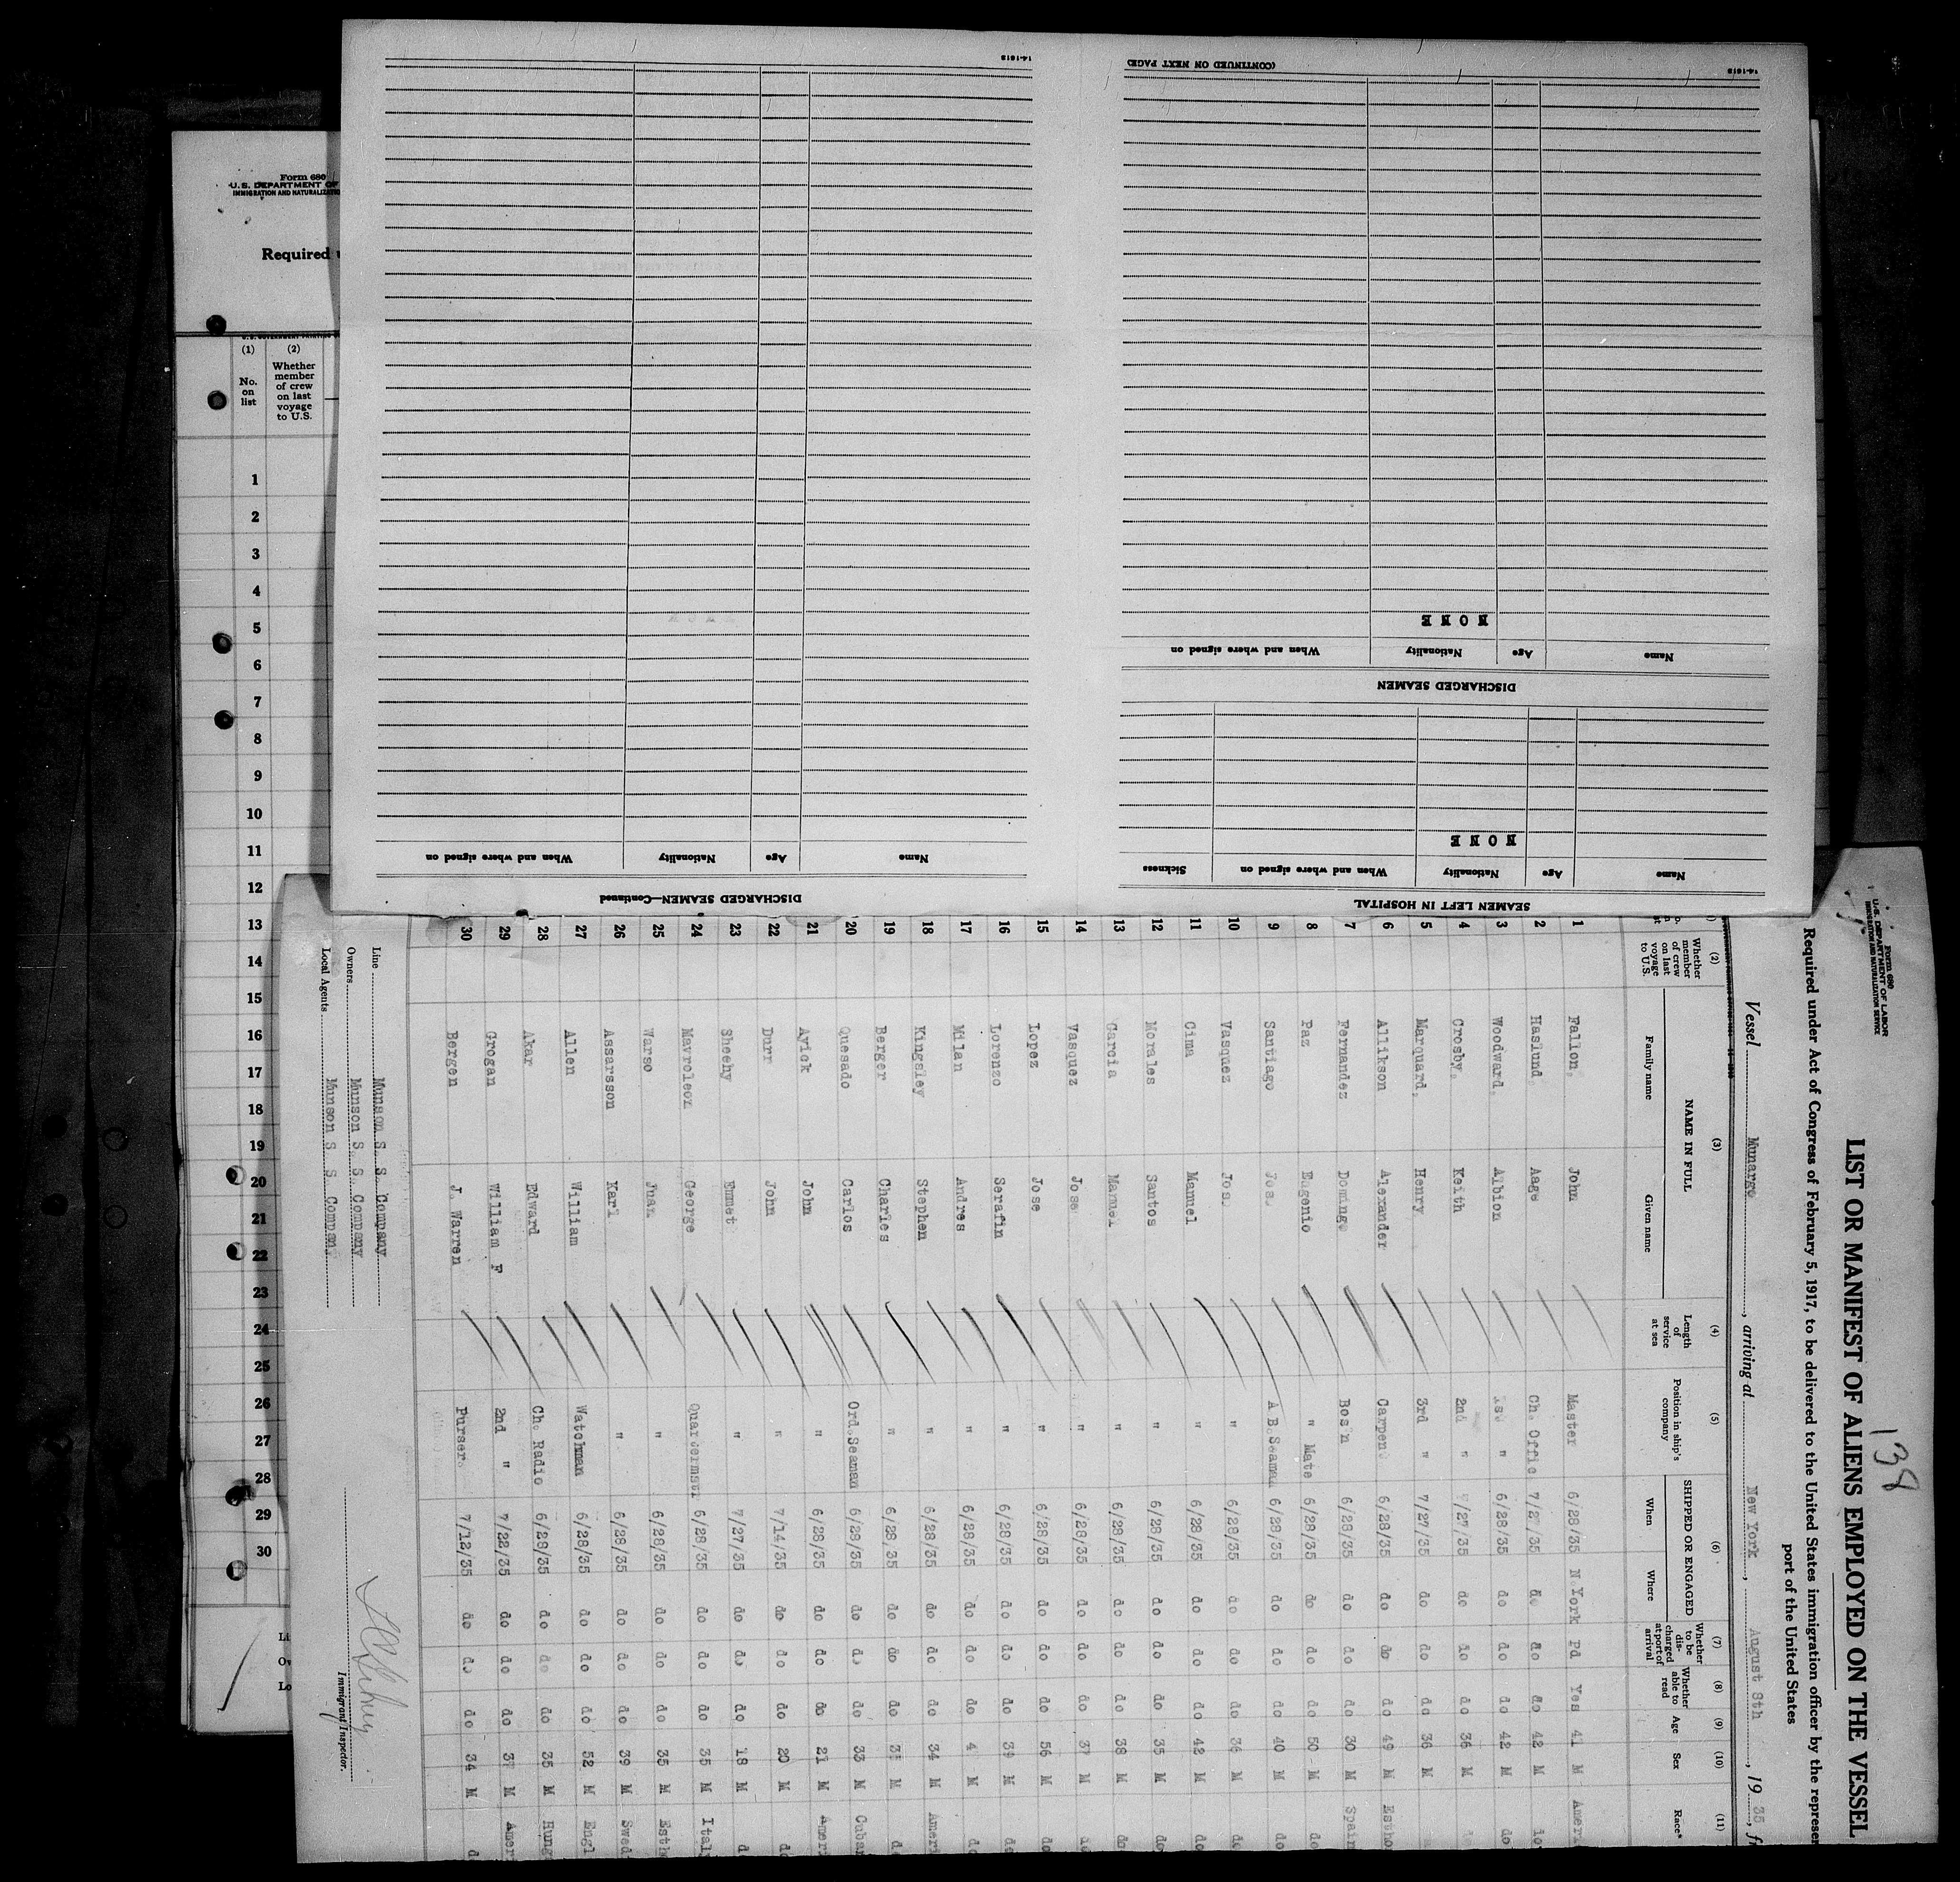 14-1613
(CONTINUED ON NEXT PAGE)
14-1613
NONE
Name
Age
Nationality
When and where signed on
DISCHARGED SEAMEN
NONE
Name
Age
Nationality
When and where signed on
Sickness
SEAMEN LEFT IN HOSPITAL
Name
Age
Nationality
When and where signed on
DISCHARGED SEAMEN—Continued
Form 680
U.S. DEPARTMENT OF
IMMIGRATION AND
Required
(1)
No.
on
list
(2)
Whether
member
of crew
on last
voyage
to U.S.
1
2
3
4
5
6
7
8
9
10
11
12
13
14
15
16
17
18
19
20
21
22
23
24
25
26
27
28
29
30
138
Form 680
U.S. DEPARTMENT OF LABOR
IMMIGRATION AND NATURALIZATION SERVICE
LIST OR MANIFEST OF ALIENS EMPLOYED ON THE VESSEL
Required under Act of Congress of February 5, 1917, to be delivered to the United States immigration officer by the represen
port of the United States
Vessel Munargo, arriving at New York, August 8th, 1935, f
(2) Whether member of crew on last voyage to U.S.
(3) NAME IN FULL
Family name
Given name
(4) Length of service at sea
(5) Position in ship's company
(6) SHIPPED OR ENGAGED
When
Where
(7) Whether to be discharged at port of arrival
(8) Whether able to read
(9) Age
(10) Sex
(11) Race*
1 Fallon, John Master 6/28/35 N.York Pd Yes 41 M Ameri
2 Haslund, Aage Ch. Offic 7/27/35 do do do 42 M
3 Woodward, Albion 1st " 6/28/35 do do do 42 M do
4 Crosby, Keith 2nd " 7/27/35 do do do 36 M
5 Marquard, Henry 3rd " 7/27/35 do do do 36 M
6 Allikson Alexander Carpen. 6/28/35 do do do 49 M Estho
7 Fernandez Domingo Bos'n 6/28/35 do do do 30 M Spain
8 Paz Eugenio " Mate 6/28/35 do do do 50 M do
9 Santiago Jose A B.Seaman 6/28/35 do do do 40 M do
10 Vasquez Jose " 6/28/35 do do do 36 M do
11 Cima Manuel " 6/28/35 do do do 42 M do
12 Morales Santos " 6/28/35 do do do 35 M do
13 Garcia Manuel " 6/28/35 do do do 38 M do
14 Vasquez Jose " 6/28/35 do do do 37 M do
15 Lopez Jose " 6/28/35 do do do 56 M do
16 Lorenzo Serafin " 6/28/35 do do do 39 M do
17 Milan Andres " 6/28/35 do do do 4 M do
18 Kingsley Stephen " 6/28/35 do do do 34 M Ameri
19 Berger Charles " 6/28/35 do do do M do
20 Quesado Carlos Ord.Seaman 6/28/35 do do do 33 M Cuban
21 Ayick John " 6/28/35 do do do 21 M Ameri
22 Durr John " 7/14/35 do do do 20 M do
23 Sheehy Emmet " 7/27/35 do do do 18 M d
24 Mavroleon George Quartermstr 6/28/35 do do do 35 M Italy
25 Warso Juan " 6/28/35 do do do 35 M Esth
26 Assarsson Karl " 6/28/35 do do do 39 M Swed
27 Allen William Watchman 6/28/35 do do do 52 M Engl
28 Akar Edward Ch. Radio 6/28/35 do do do 35 M Hung
29 Grogan William F 2nd " 7/22/35 do do do 37 M Amer
30 Bergen J. Warren Purser 7/12/35 do do do 34 M d
Line Munson S. S. Company
Owners Munson S. S. Company
Local Agents Munson S. S. Company
Immigrant Inspector.
Li
Ow
Lo